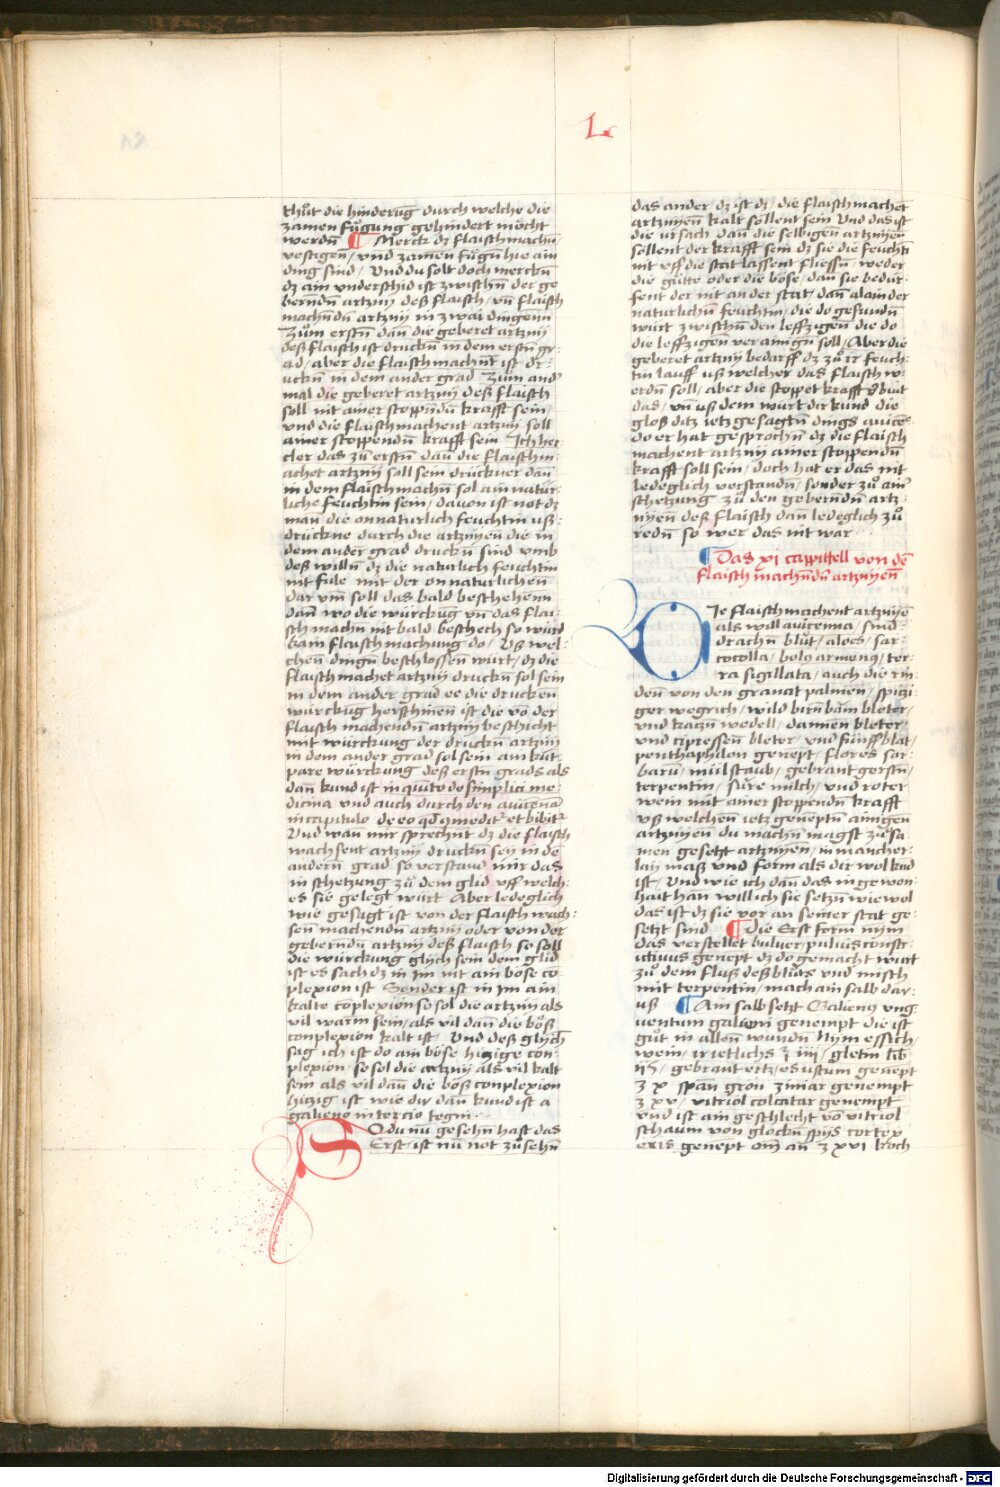 L.
thůt die hinderūg durch welche die
zamen fůgung gehindert möcht
werdñ ¶ Merck dz flaisch machñ/
vestigen/ vnd zamen fůgñ hie ain
ding sind/ Vnd du solt doch merckñ
dz ain vnderschid ist zwischñ der ge
berndñ artznÿ deß flaisch/ vñ flaisch
machndñ artznÿ in zwai dingenn
Zům erstñ dan die geberet artznÿ
deß flaisch ist druckñ in dem erstñ gr
ad/ aber die flaisch machnt ist dr
uckñ in dem ander grad Zům and
mal die geberet artznÿ deß flaisch
soll nit ainer stoppndñ krafft sein/
vnd die flaisch machent artznÿ soll
ainer stoppendñ krafft sein
cler das zů erstñ dan die flaisch m
achet artznÿ soll sein drückner dañ
in dem flaisch machñ sol ain natür
liche feuchtin sein/ davon ist not dz
man die onnaturlich feuchtin uß
drückne durch die artznÿen die in
dem ander grad druckñ sind vmb
deß willñ dz die naturlich feuchtin
nit fule mit der onnaturlichen
dar vm soll das bald beschehenn
dañ wo die würckūg vñ das flai
sch machñ nit bald beschech so würd
kain flaisch machung do/ Vß wel
chen dingñ beschlossen würt/ dz die
flaisch machet artznÿ druckñ sol sein
in dem ander grad ee die drucken
würckūg herschinen ist die vō der
flaisch machendñ artznÿ beschicht
mit würckung der druckñ artznÿ
in dem ander grad sol sein ain kūt
pare würckung deß erstñ grads als
dañ kund ist in quīto de simplici me
dicina vnd auch durch den auicenā
in capitulo de eo qd
Vnd wan mir sprechnt dz die flaisch
wachsent artznÿ druckñ seÿ in de
andern grad so verstand mir das
in schetzung zů dem glid vff welch
es sie gelegt würt Aber ledeglich
wie gesagt ist von der flaisch wach
sen machendñ artznÿ oder von der
geberndñ artznÿ deß flaisch so soll
die würckung glÿch sein dem glid
ist es sach dz in im nit ain böse cō
plexion ist Sonder ist in im ain
kalte cōplexion so sol die artznÿ als
vil warm sein/ als vil dañ die böß
conplexion kalt ist/ Vnd deß glÿch
sag ich ist do ain böse hizige con
plexion/ so sol die artznÿ als vil kalt
sein als vil dañ die böß conplexion
hitzig ist wie dir dañ kund ist a
galieno in tercio tegni
So du nu gesehñ hast das
Erst ist nū not zů sehñ
das ander dz ist dz/ die flaisch machet
artznÿen kalt sollent sein Vnd das ist
die vrsach dañ die selbigen artznÿen
sollent der krafft sein dz sie die feuchtī
nit vff die stat lassent fliessñ/ weder
die gůtte oder die böse/ dañ sie bedür
fent der nit an der stat/ dañ alain der
naturlichñ feuchtin/ die do gesundñ
würt zwischñ den leffzigen die do
die leffzigen verainigñ soll/ Aber die
geberet artznÿ bedarff dz zů ir feuch
tin lauff uß welcher das flaisch w
erdñ soll/ aber die stoppet krafft
das/ vñ uß dem würt dir kund die
gloß ditz ietz gesagtñ dings auicēe
do er hat gesprochñ dz die flaisch
machent artznÿ ainer stoppendñ
krafft soll sein/ doch hat er das nit
ledeglich verstandñ/ sonder zů ain
schetzung zů den geberndñ artz
nÿen deß flaisch dañ ledeglich zů
redñ so wer das nit war
¶ Das xi cappittell von dē
flaisch machndñ artznÿenn
Die flaisch machent artznÿē
als will auicenna/ sind
drachñ blůt/ aloes/ sar
cocolla/ bolꝰ armenꝰ/ ter
ra sigillata/ auch die rin
den von den granat palmen/ spitzi
ger wegrich/ wild birñ bām bleter/
vnd katzñ wedell/ damen bleter/
vnd cipressen bleter/ vnd fünff blat/
penthaphilon genent/ flores sar
barū/ mülstaub/ gebrant gerstñ/
terpentin/ sure milch/ vnd roter
wein mit ainer stoppendñ krafft
Vß welchen ietz genēptñ ainigen
artznÿen du machñ magst zůsa
men gesetzt artznÿen/ in mancher
laÿ maß vnd form als dir wol kūd
ist/ Vnd wie ich dañ das in gewon
hait hañ will ich sie setzñ wie wol
das ist dz sie vor an seiner stat ge
setzt sind ¶ Die Erst form nÿm
das verstellet buluer/ puluis constr
ictiuus genept dz do gemacht würt
zů dem fluß deß blůts vnd misch
mit terpentin/ mach ain salb dar
uß ¶ Ain salb setzt Galienꝰ vng
uentum galieni genempt die ist
gůt in allen wundñ Nÿm essich/
wein/ ir ietlichs ℥ iiij/ gletin lib
ijS/ gebrant ertz/ es ustum genēpt
℥ x span grön ziniar genempt
℥ xv/ vitriol colcatar genempt
vnd ist ain geschlecht vō vitriol
schaum von glockñ spÿs cortex
eris genept om̄ añ ℥ xvi koch
Digitalisierung gefördert durch die Deutsche Forschungsgemeinschaft - DFG